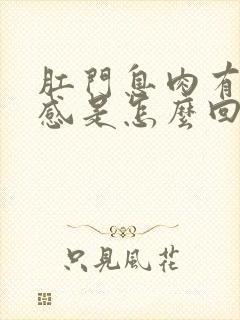 肛門息肉有
感是怎麼回
只見風花